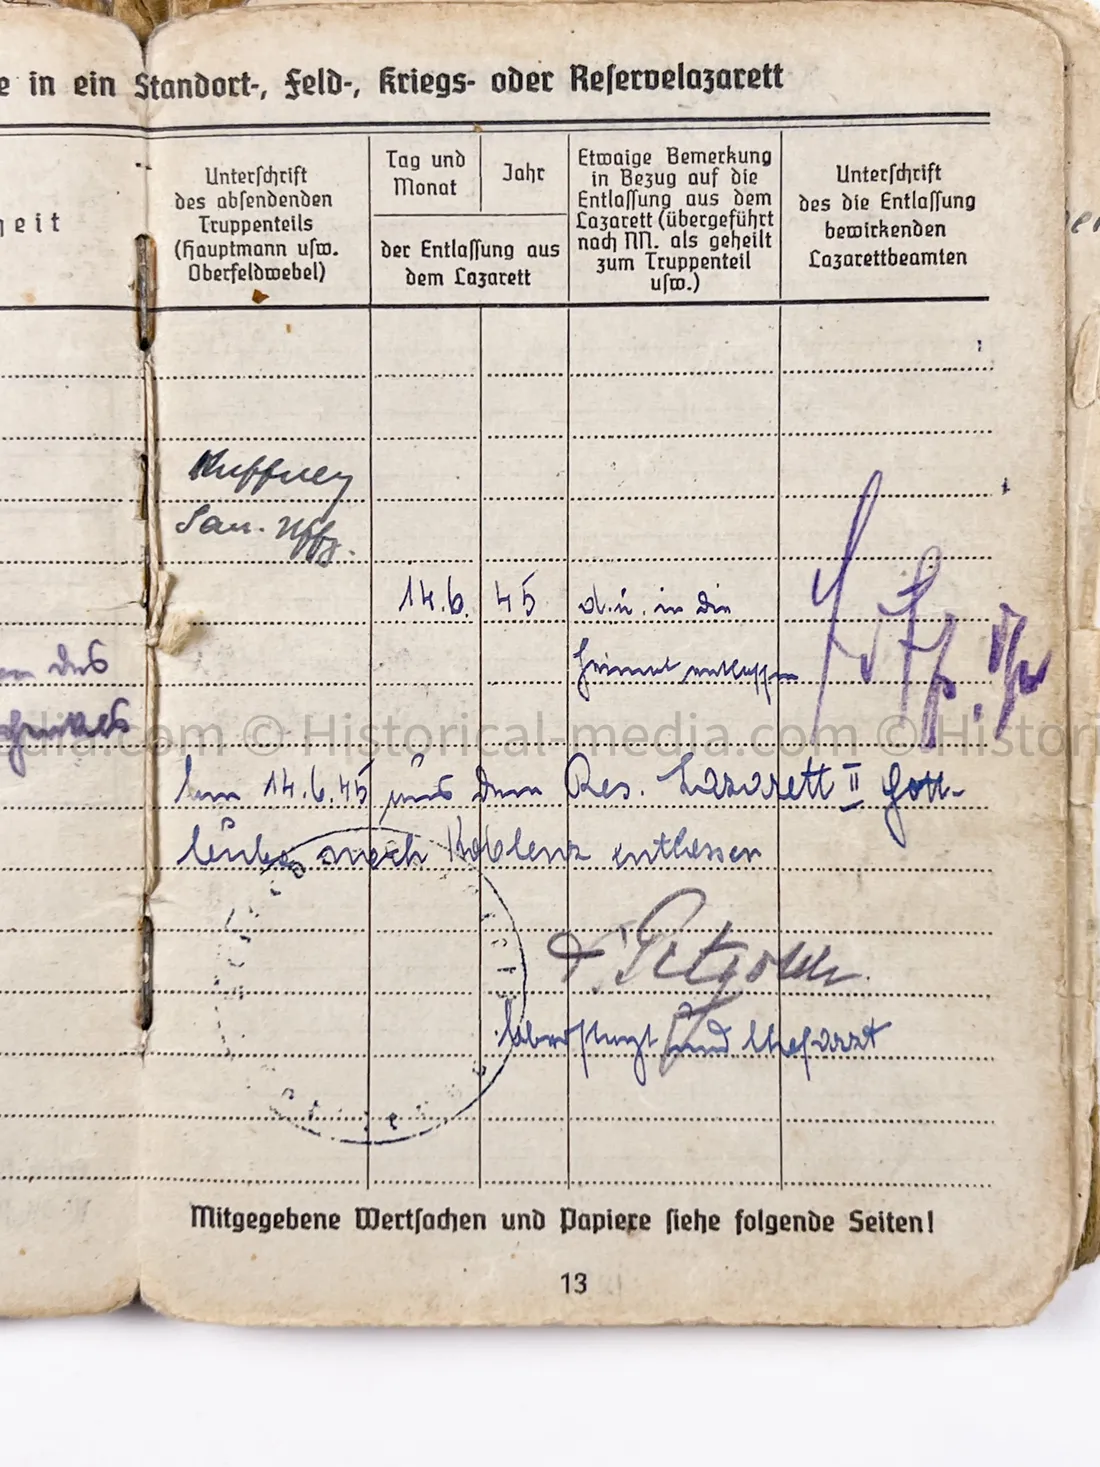 e in ein Standort-, Feld-, Kriegs- oder Reservelazarett
heit
Unterschrift
des absendenden
Truppenteils
(Hauptmann usw.
Oberfeldwebel)
Tag und
Monat
Jahr
der Entlassung aus
dem Lazarett
Etwaige Bemerkung
in Bezug auf die
Entlassung aus dem
Lazarett (übergeführt
nach NN. als geheilt
zum Truppenteil
usw.)
Unterschrift
des die Entlassung
bewirkenden
Lazarettbeamten
San. Uffz.
14.6. 45 d.u. in die
Heimat entlassen
des
dia.com © Historical-media.com © Histori
14.6.45 aus dem Res. Lazarett II Gott-
leuba nach Koblenz entlassen
und Chefarzt
Mitgegebene Wertsachen und Papiere siehe folgende Seiten!
13